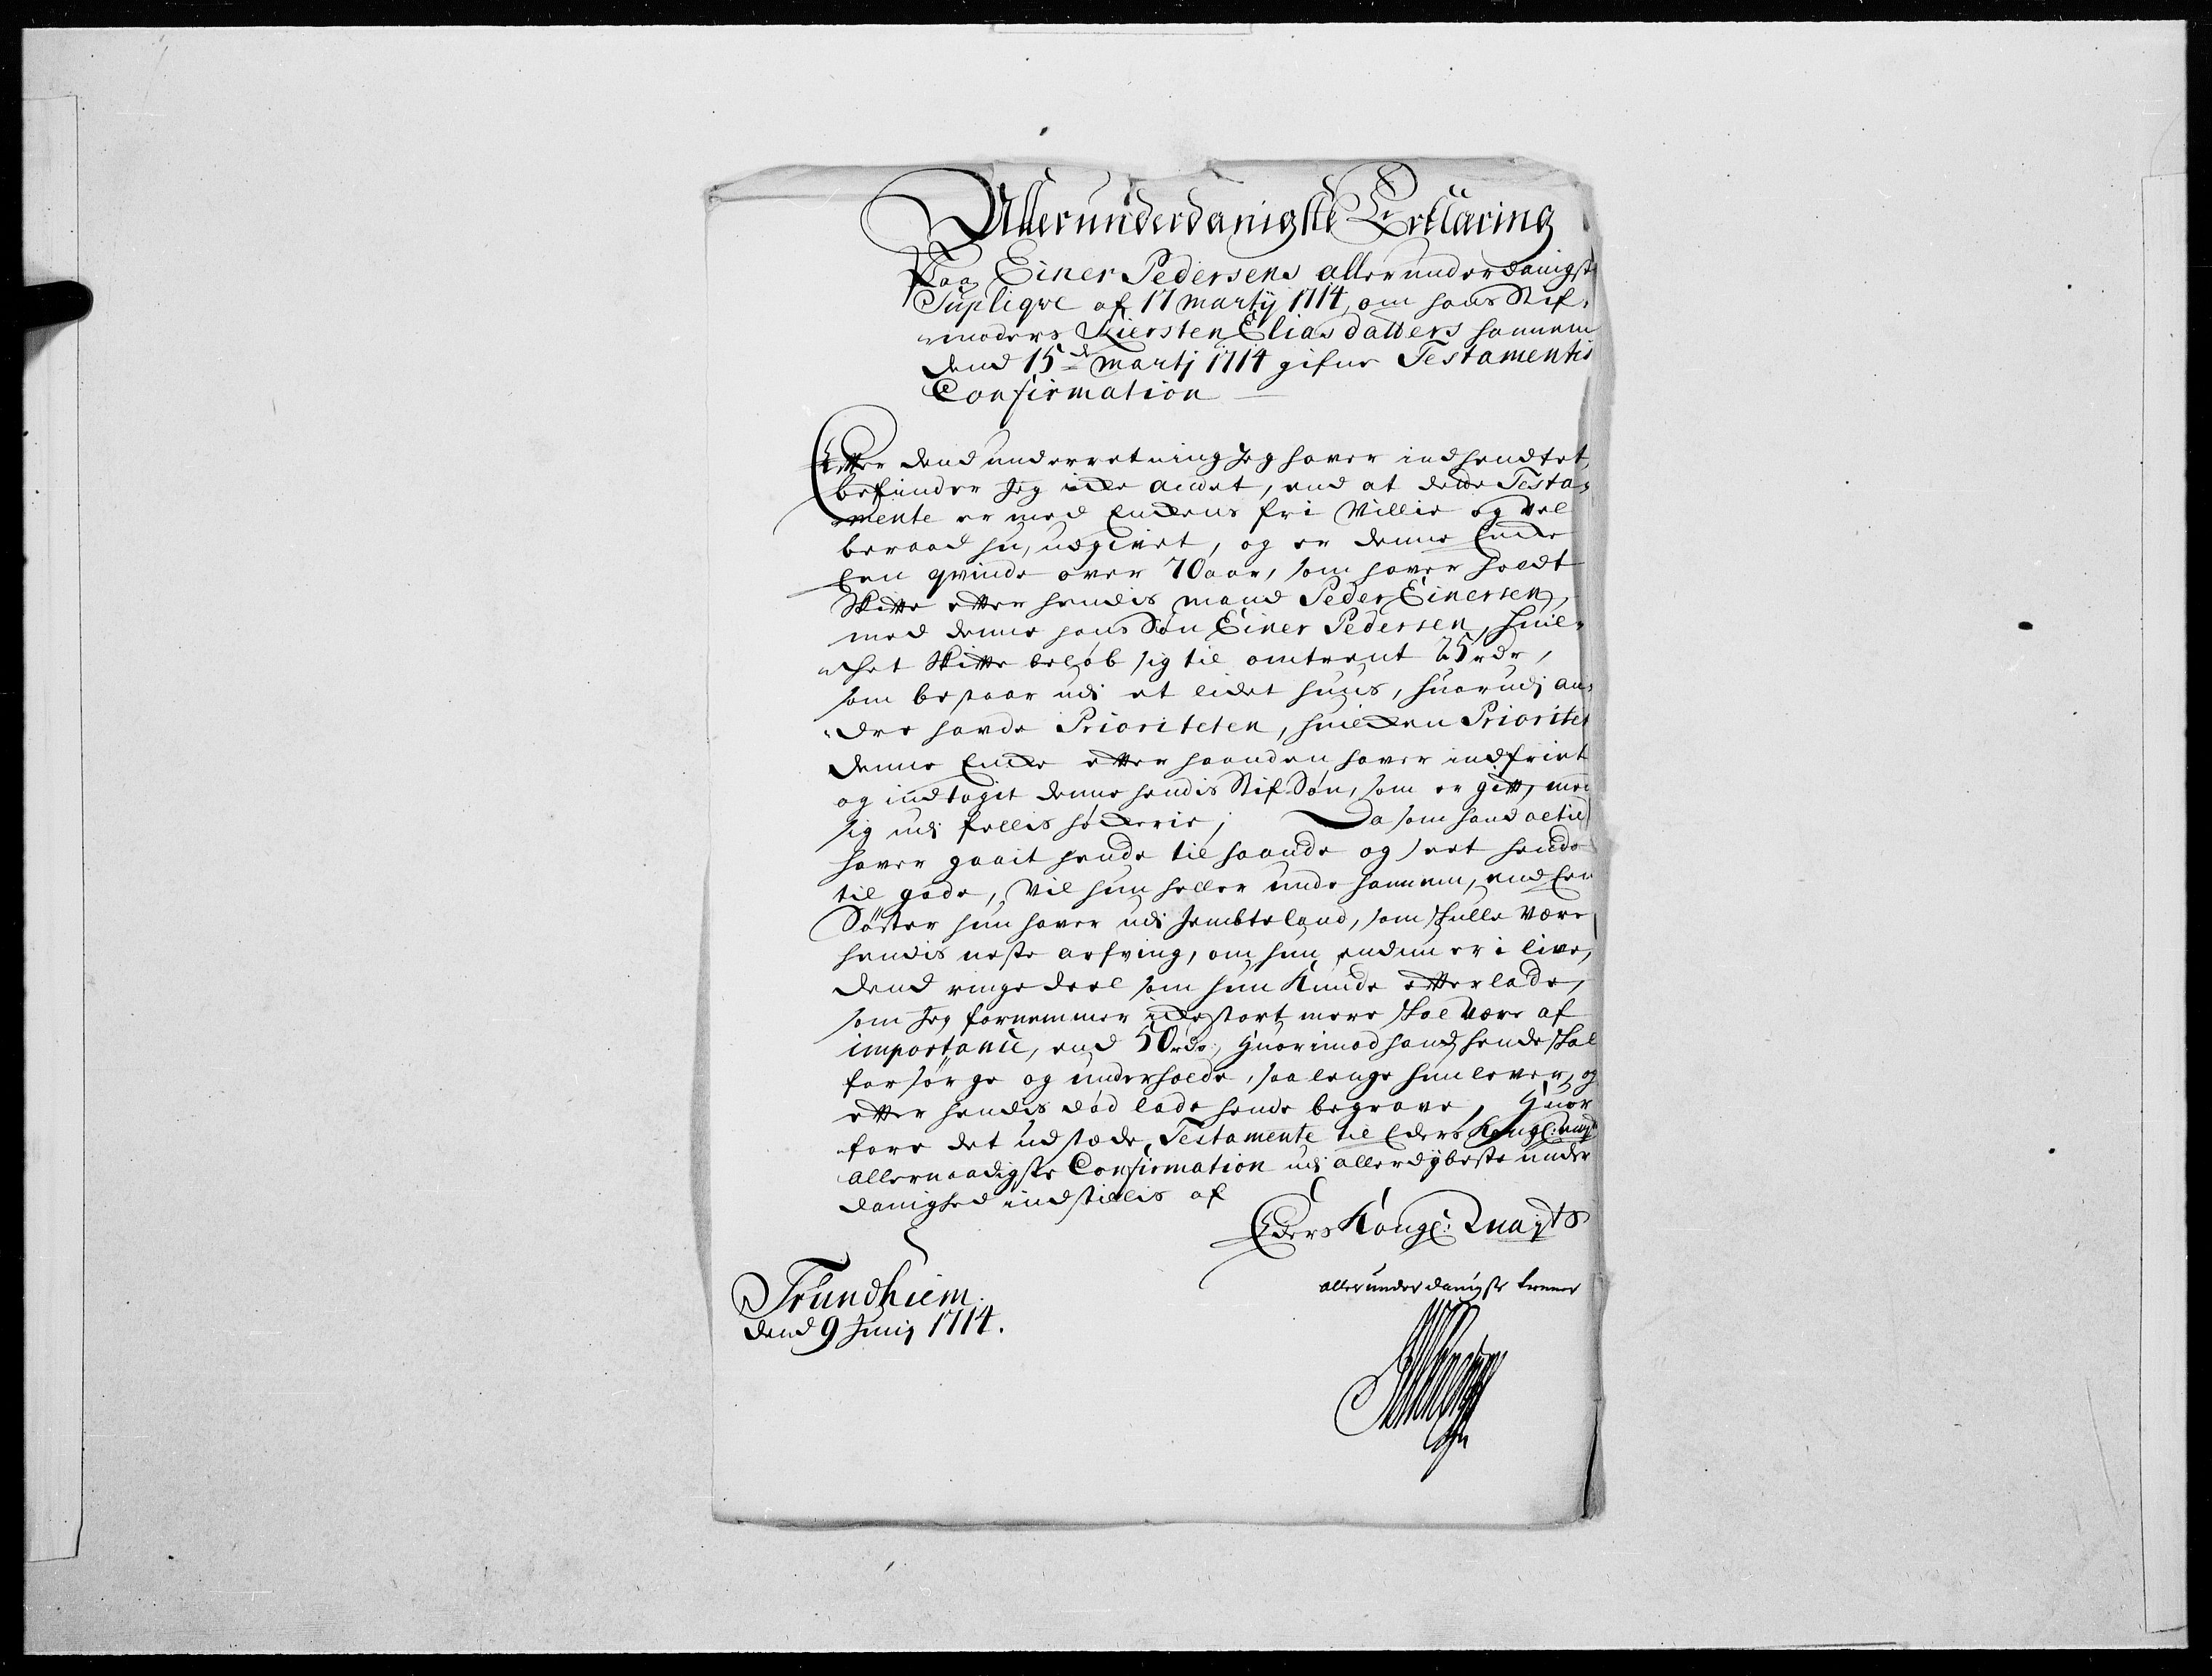 Allerunderdanigste Erklæring
Paa Einer Pedersens allerunderdanigste
Supliqve af 17 Martij 1714, om hans Stif-
moders Kiersten Eliasdatters hannem
dend 15de Martj 1714 gifne Testamentis
Confirmation
Efter dend underretning Jeg haver indhendtet,
befinder Jeg icke andet, end at dette Testa-
mente er med Enckens fri Villie og Vel
beraad hu, udgivet, og er denne Encke
Een qvinde over 70 aar, som haver holdt
Skifte efter hendis mand Peder Einersen,
med denne hans Søn Einer Pedersen, huil-
chet Skifte beløb sig til omtrent 25 rdr,
som bestaar udi et lidet huus, huorudj an-
dre havde Prioriteten, huilcken Prioritet
denne Encke efter haanden haver indfriet
og indtagit denne hendis Stif Søn, som er gift, med
sig udi fellis høckerie; Da som hand altid
haver gaait hende til haande og seet hende
til gode, Vil hun heller unde hannem, end Een
Søster hun haver udi Jembteland, som skulle Være
hendis neste arfving, om hun endnu er i live,
dend ringe deel som hun Kunde efterlade,
som Jeg fornemmer icke stort mere skal Være af
importance, end 50 rdr, Huorimod hand hende skal
forsørge og underholde, saa lenge hun lever, og
efter hendis død lade hende begrave, Huor
fore det udstæde Testamente til Eders Kongl: Mayts
allernaadigste Confirmation udi allerdybeste under
danighed indstillis af
Eders Kongl: Mayts
allerunderdanigste tienner
Trundhiem
dend 9 Junij 1714.